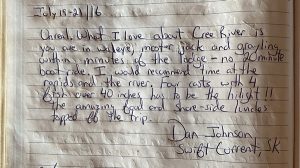 July 18-21/16
Unreal. What I love about Cree River is
you are in walleye, most jack and grayling
within minutes of the lodge - no 20 minute
boat ride. I would recommend time at the
rapids and the river. Four casts with 4
fish over 40 inches has to be the hilight!!
The amazing food and shore-side lunches
topped off the trip.
Dan Johnson
Swift Current, SK